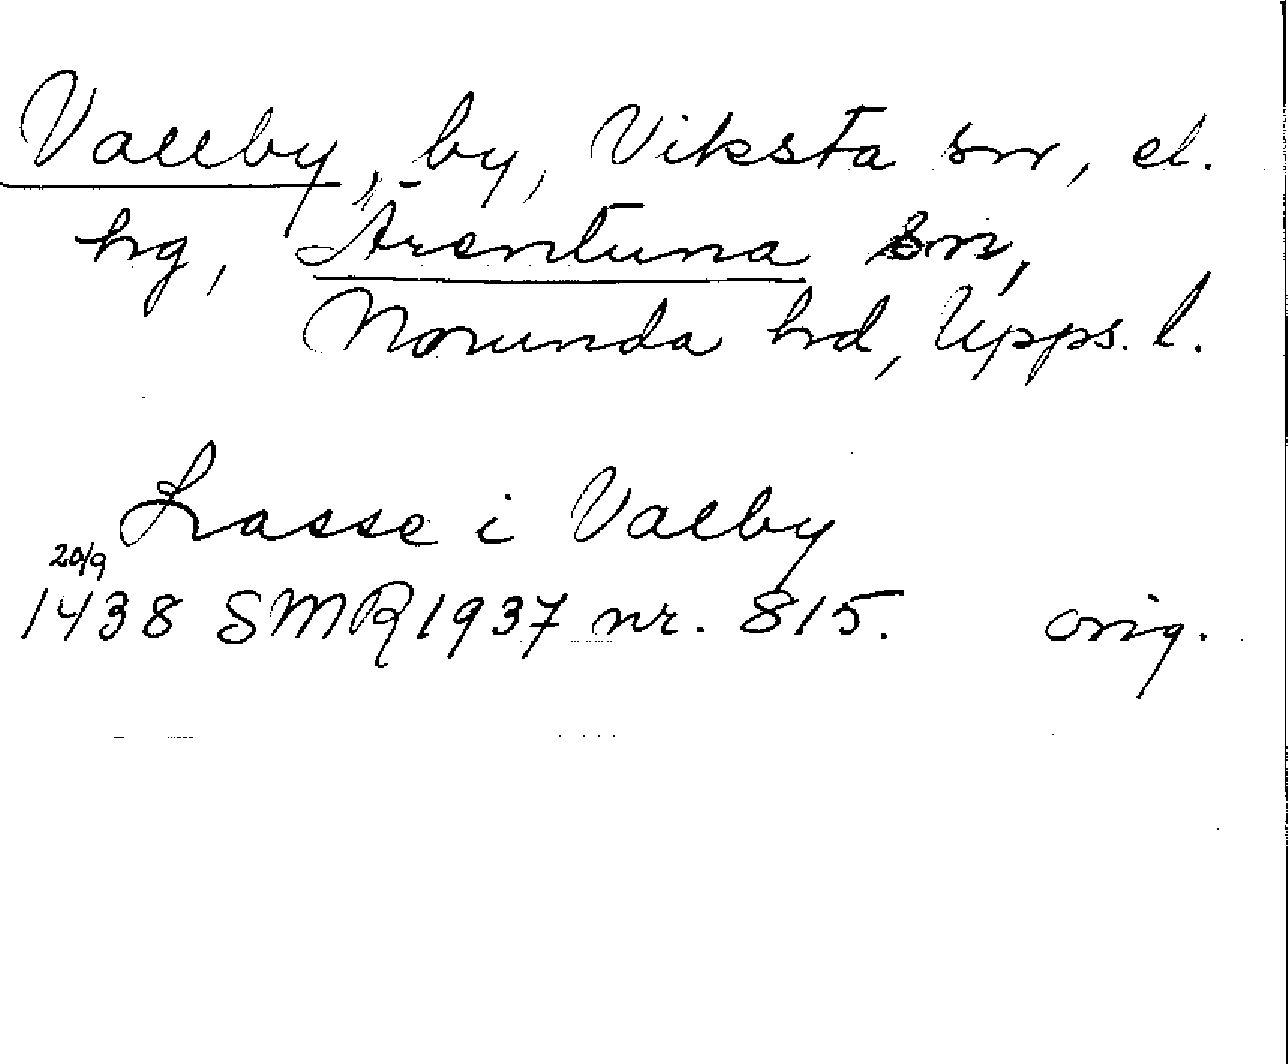 Vallby, by, Viksta sn, el.
hg, Ärentuna sn,
Norunda hd, Upps. l.
Lasse i Valby
20/9
1438 SMR 1937 nr. 815. orig.